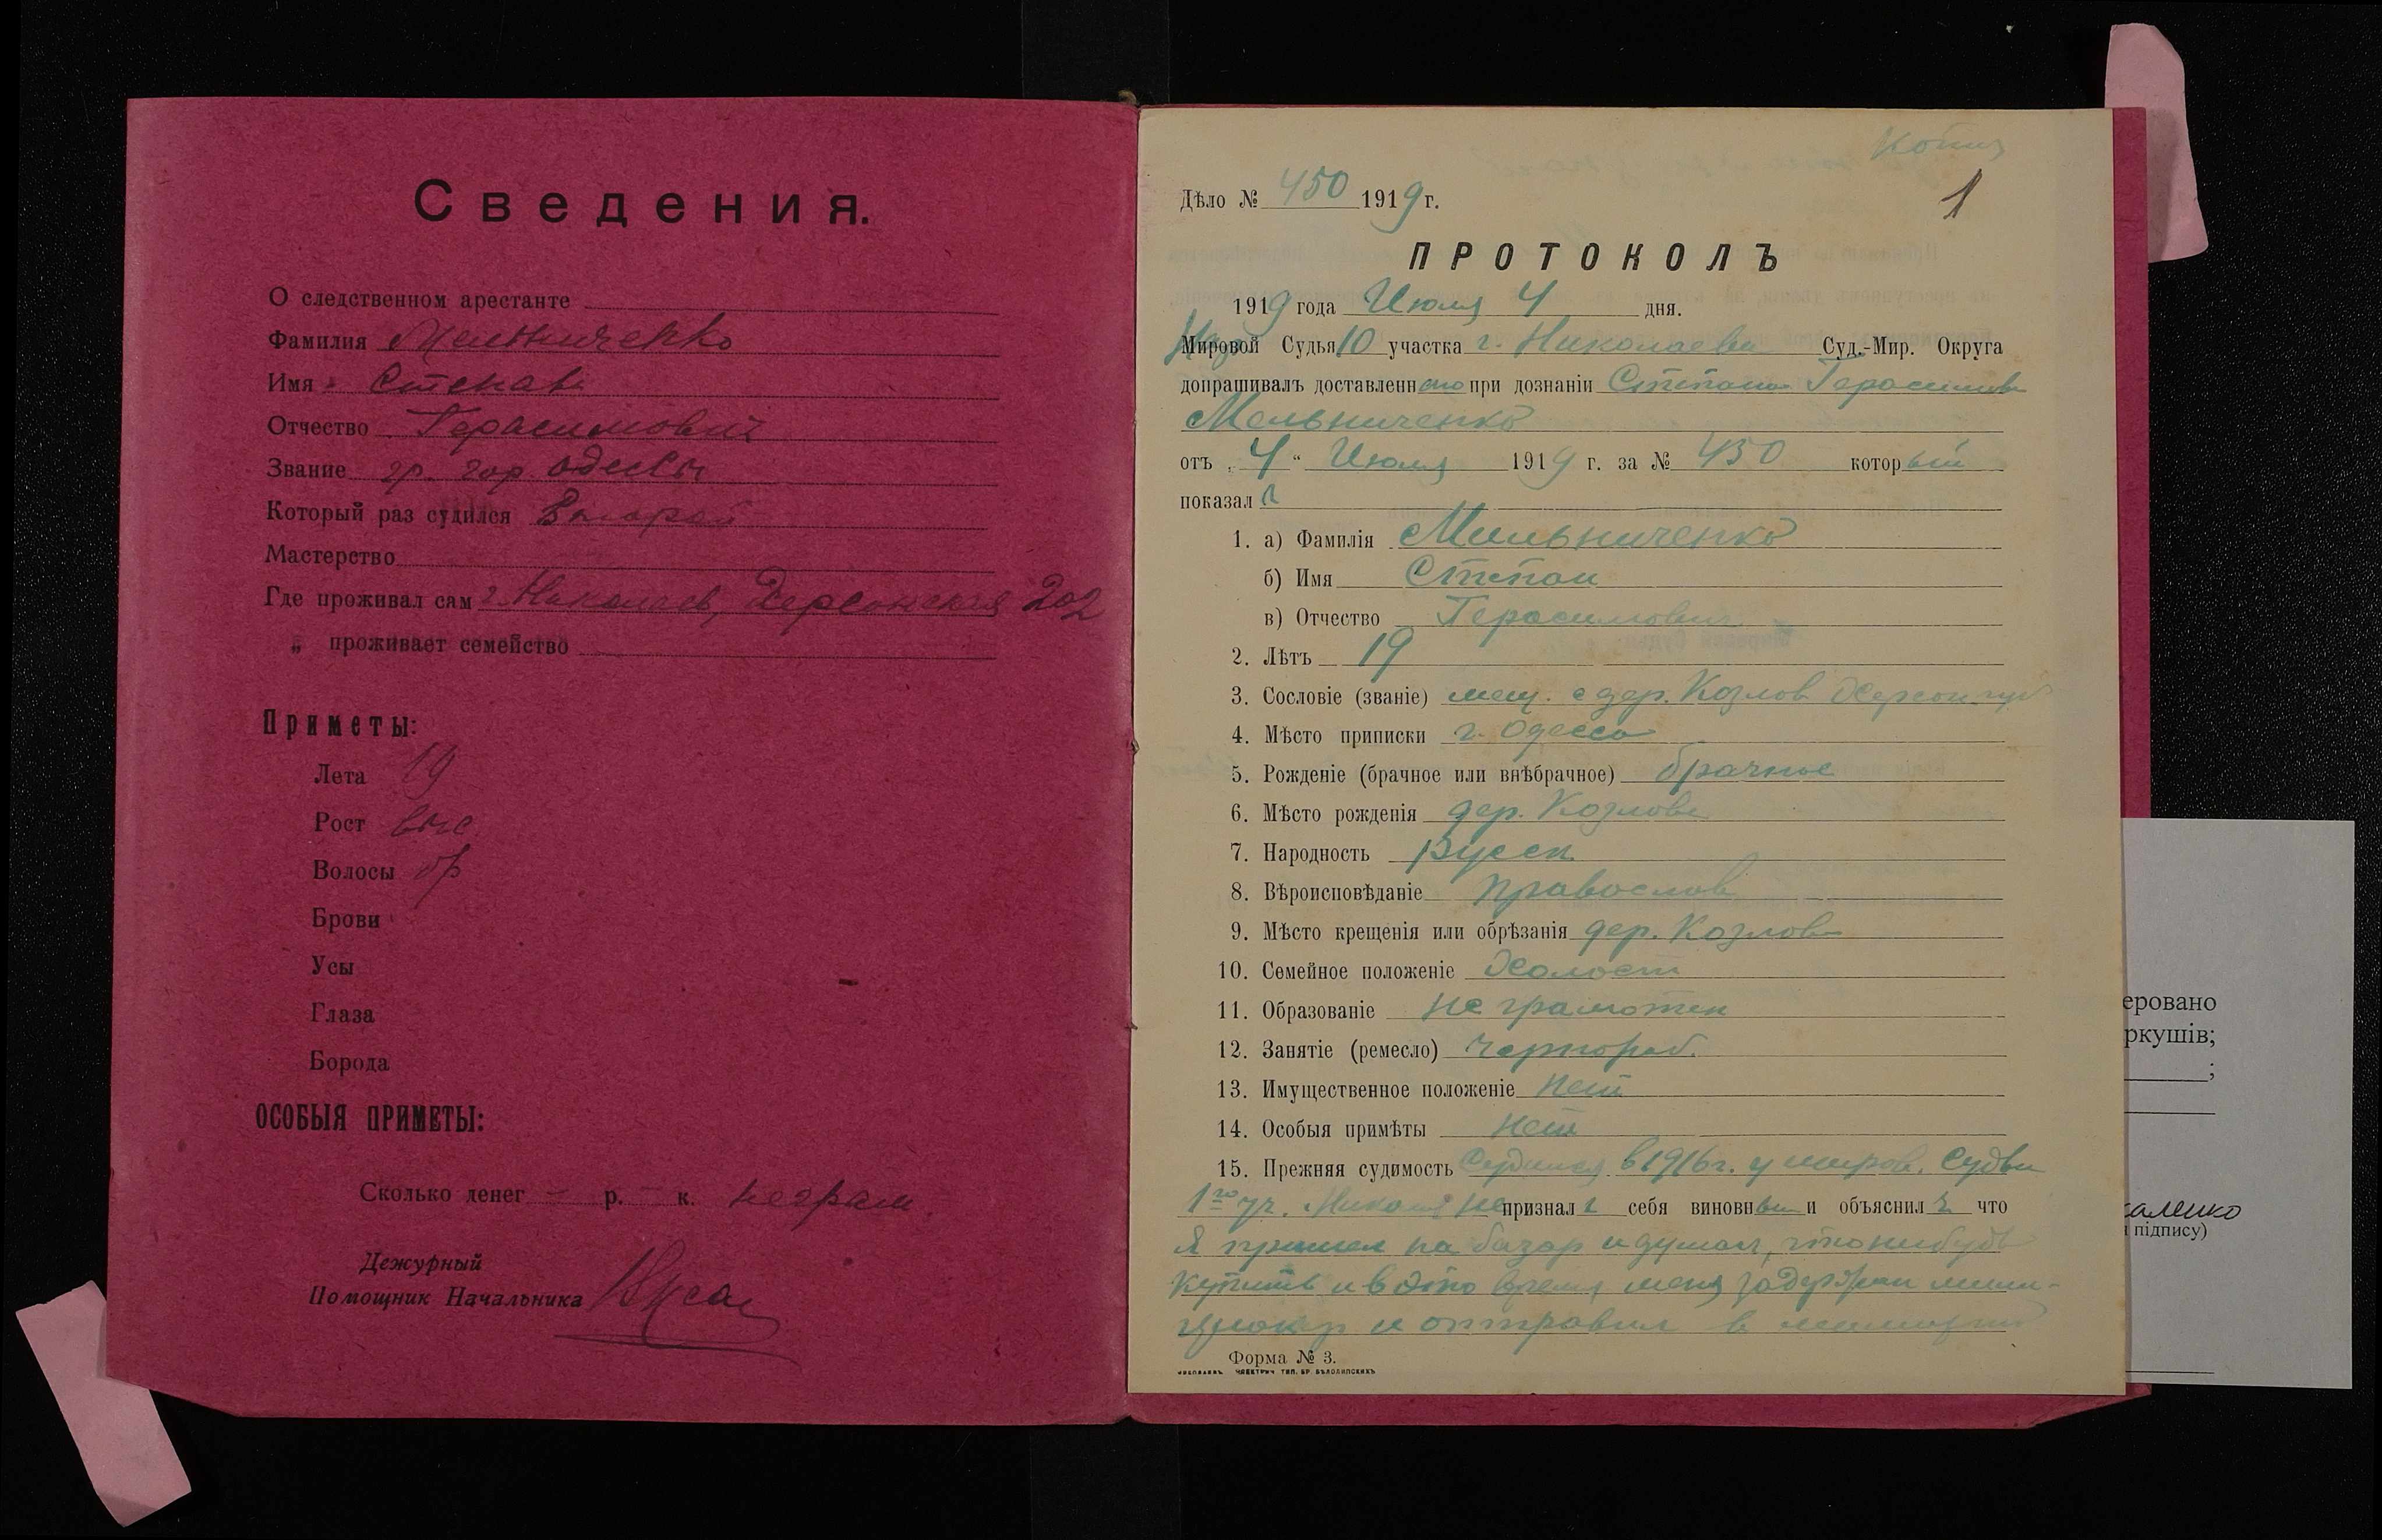 Сведения.
О следственном арестанте
Фамилия Мельниченко
Имя Степан
Отчество Герасимович
Звание гр. гор. Одессы
Который раз судился Второй
Мастерство
Где проживал сам г. Николаев, Херсонская 202
„ проживает семейство
Приметы:
Лета 19
Рост выс
Волосы
Брови
Усы
Глаза
Борода
ОСОБЫЯ ПРИМЕТЫ:
Сколько денег – р. – к. неграм.
Дежурный
Помощник Начальника
Копия
1
Дѣло № 450 1919 г.
ПРОТОКОЛЪ
1919 года Июля 4 дня.
Мировой Судья 10 участка г. Николаева Суд.-Мир. Округа
допрашивалъ доставленного при дознаніи Степана Герасимов
Мельниченко
отъ „4“ Июля 1919 г. за № 450 который
показал
1. а) Фамилія Мельниченко
б) Имя Степан
в) Отчество Герасимович
2. Лѣтъ 19
3. Сословіе (званіе) мещ. с дер. Козлов Херсон. губ
4. Мѣсто приписки г. Одесса
5. Рожденіе (брачное или внѣбрачное) брачное
6. Мѣсто рожденія дер. Козлова
7. Народность Русск
8. Вѣроисповѣданіе Православ
9. Мѣсто крещенія или обрѣзанія дер. Козлова
10. Семейное положеніе Холост
11. Образованіе не грамотен
12. Занятіе (ремесло) Чернораб.
13. Имущественное положеніе Нет
14. Особыя примѣты Нет
15. Прежняя судимость Судился в 1916 г. у миров. Судьи
1го уч. Никол. Не признал себя виновным и объяснил что
Я пришел на базар и думал, что нибудь
купить и в это время меня задержал мили-
ционер и отправил в милицию
Форма № 3.
НИКОЛАЕВЪ ЭЛЕКТРИЧ ТИП. БР БѢЛОЛИПСКИХЪ
еровано
ркушів;
;
аленко
підпису)